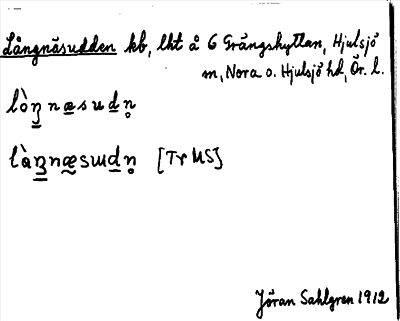 Långnäsudden kb, lht å 6 Grängshyttan, Hjulsjö
m, Nora o. Hjulsjö hd, Ör. l.
lòŋ n æ s u d n̥
là ŋ n æ s ɯ d n̥ [Tr US]
Jöran Sahlgren 1912